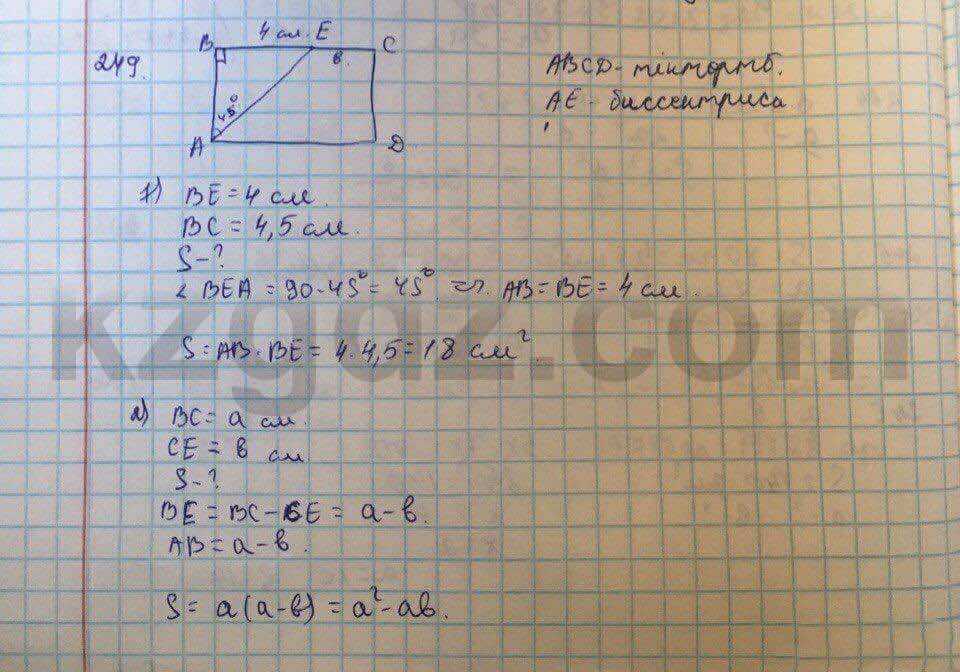 249.
B 4 см. E C
в.
45°
A D
ABCD - тіктөртб.
AE - биссектриса
1) BE = 4 см.
BC = 4,5 см.
S - ?
∠ BEA = 90 - 45° = 45° => AB = BE = 4 см.
S = AB · BE = 4 · 4,5 = 18 см².
kzgdz.com
2) BC = a см.
CE = в см
S - ?
BE = BC - CE = a - в.
AB = a - в.
S = a(a - в) = a² - aв.